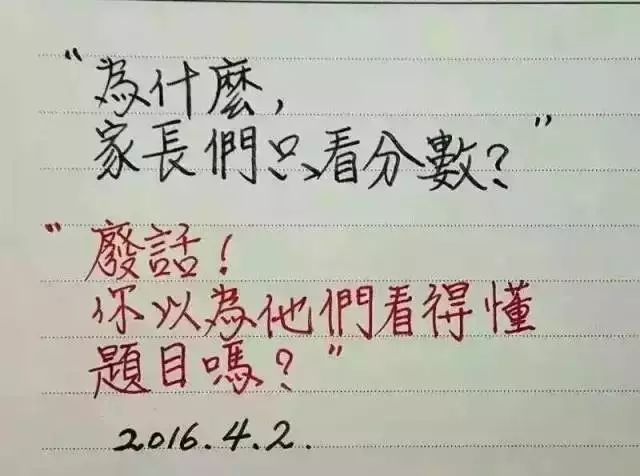 “為什麼，
家長們只看分數？”
“廢話！
你以為他們看得懂
題目嗎？”
2016.4.2.